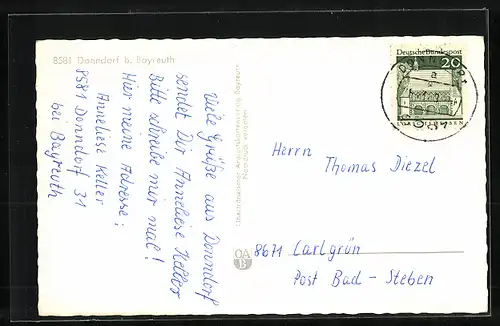 8581 Donndorf b. Bayreuth
Viele Grüße aus Donndorf
sendet Dir Anneliese Keller
Bitte schreibe mir mal!
Hier meine Adresse:
Anneliese Keller
8581 Donndorf 31
bei Bayreuth
OA
B
Deutsche Bundespost
20
8581
Herrn Thomas Diezel
8671 Carlgrün
Post Bad - Steben